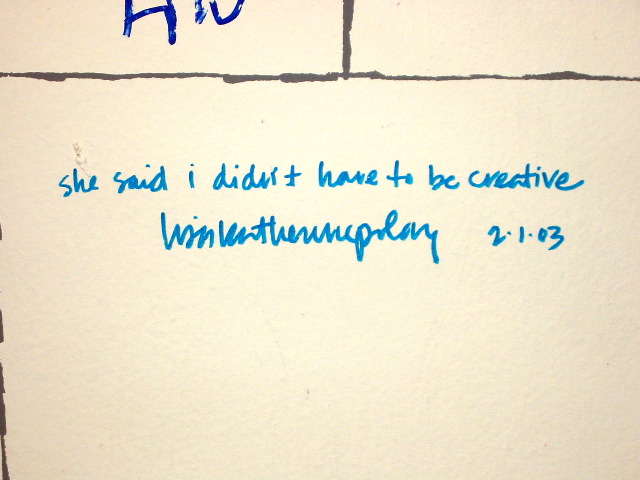 she said i didn't have to be creative
2.1.03